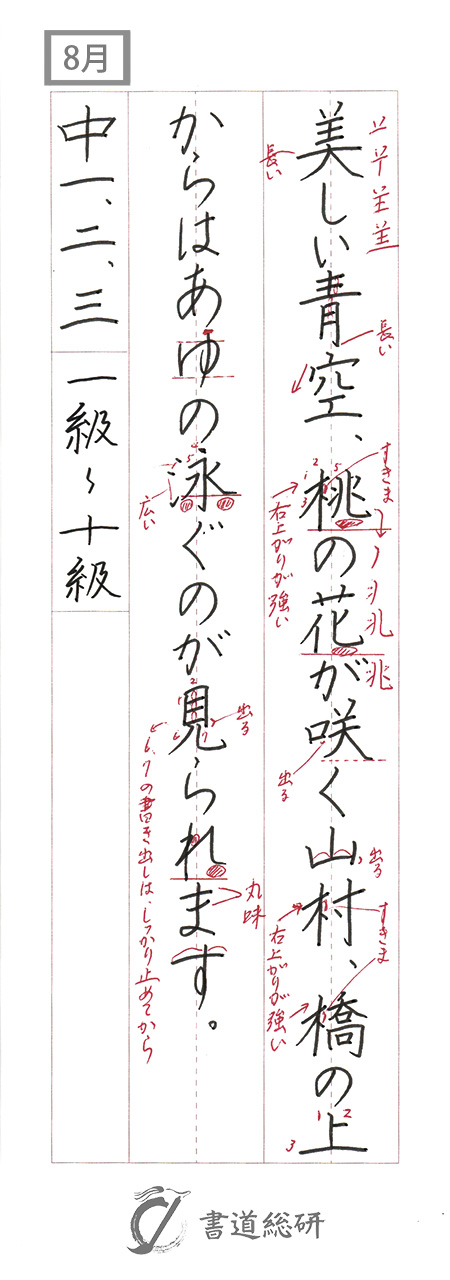 8月
美しい青空、桃の花が咲く山村、橋の上
からはあゆの泳ぐのが見られます。
中一、二、三 一級〜十級
長い
長い
すきま
右上がりが強い
出る
出る
すきま
右上がりが強い
1 2
3
広い
出る
6、7の書き出しは、しっかり止めてから
丸味
書道総研